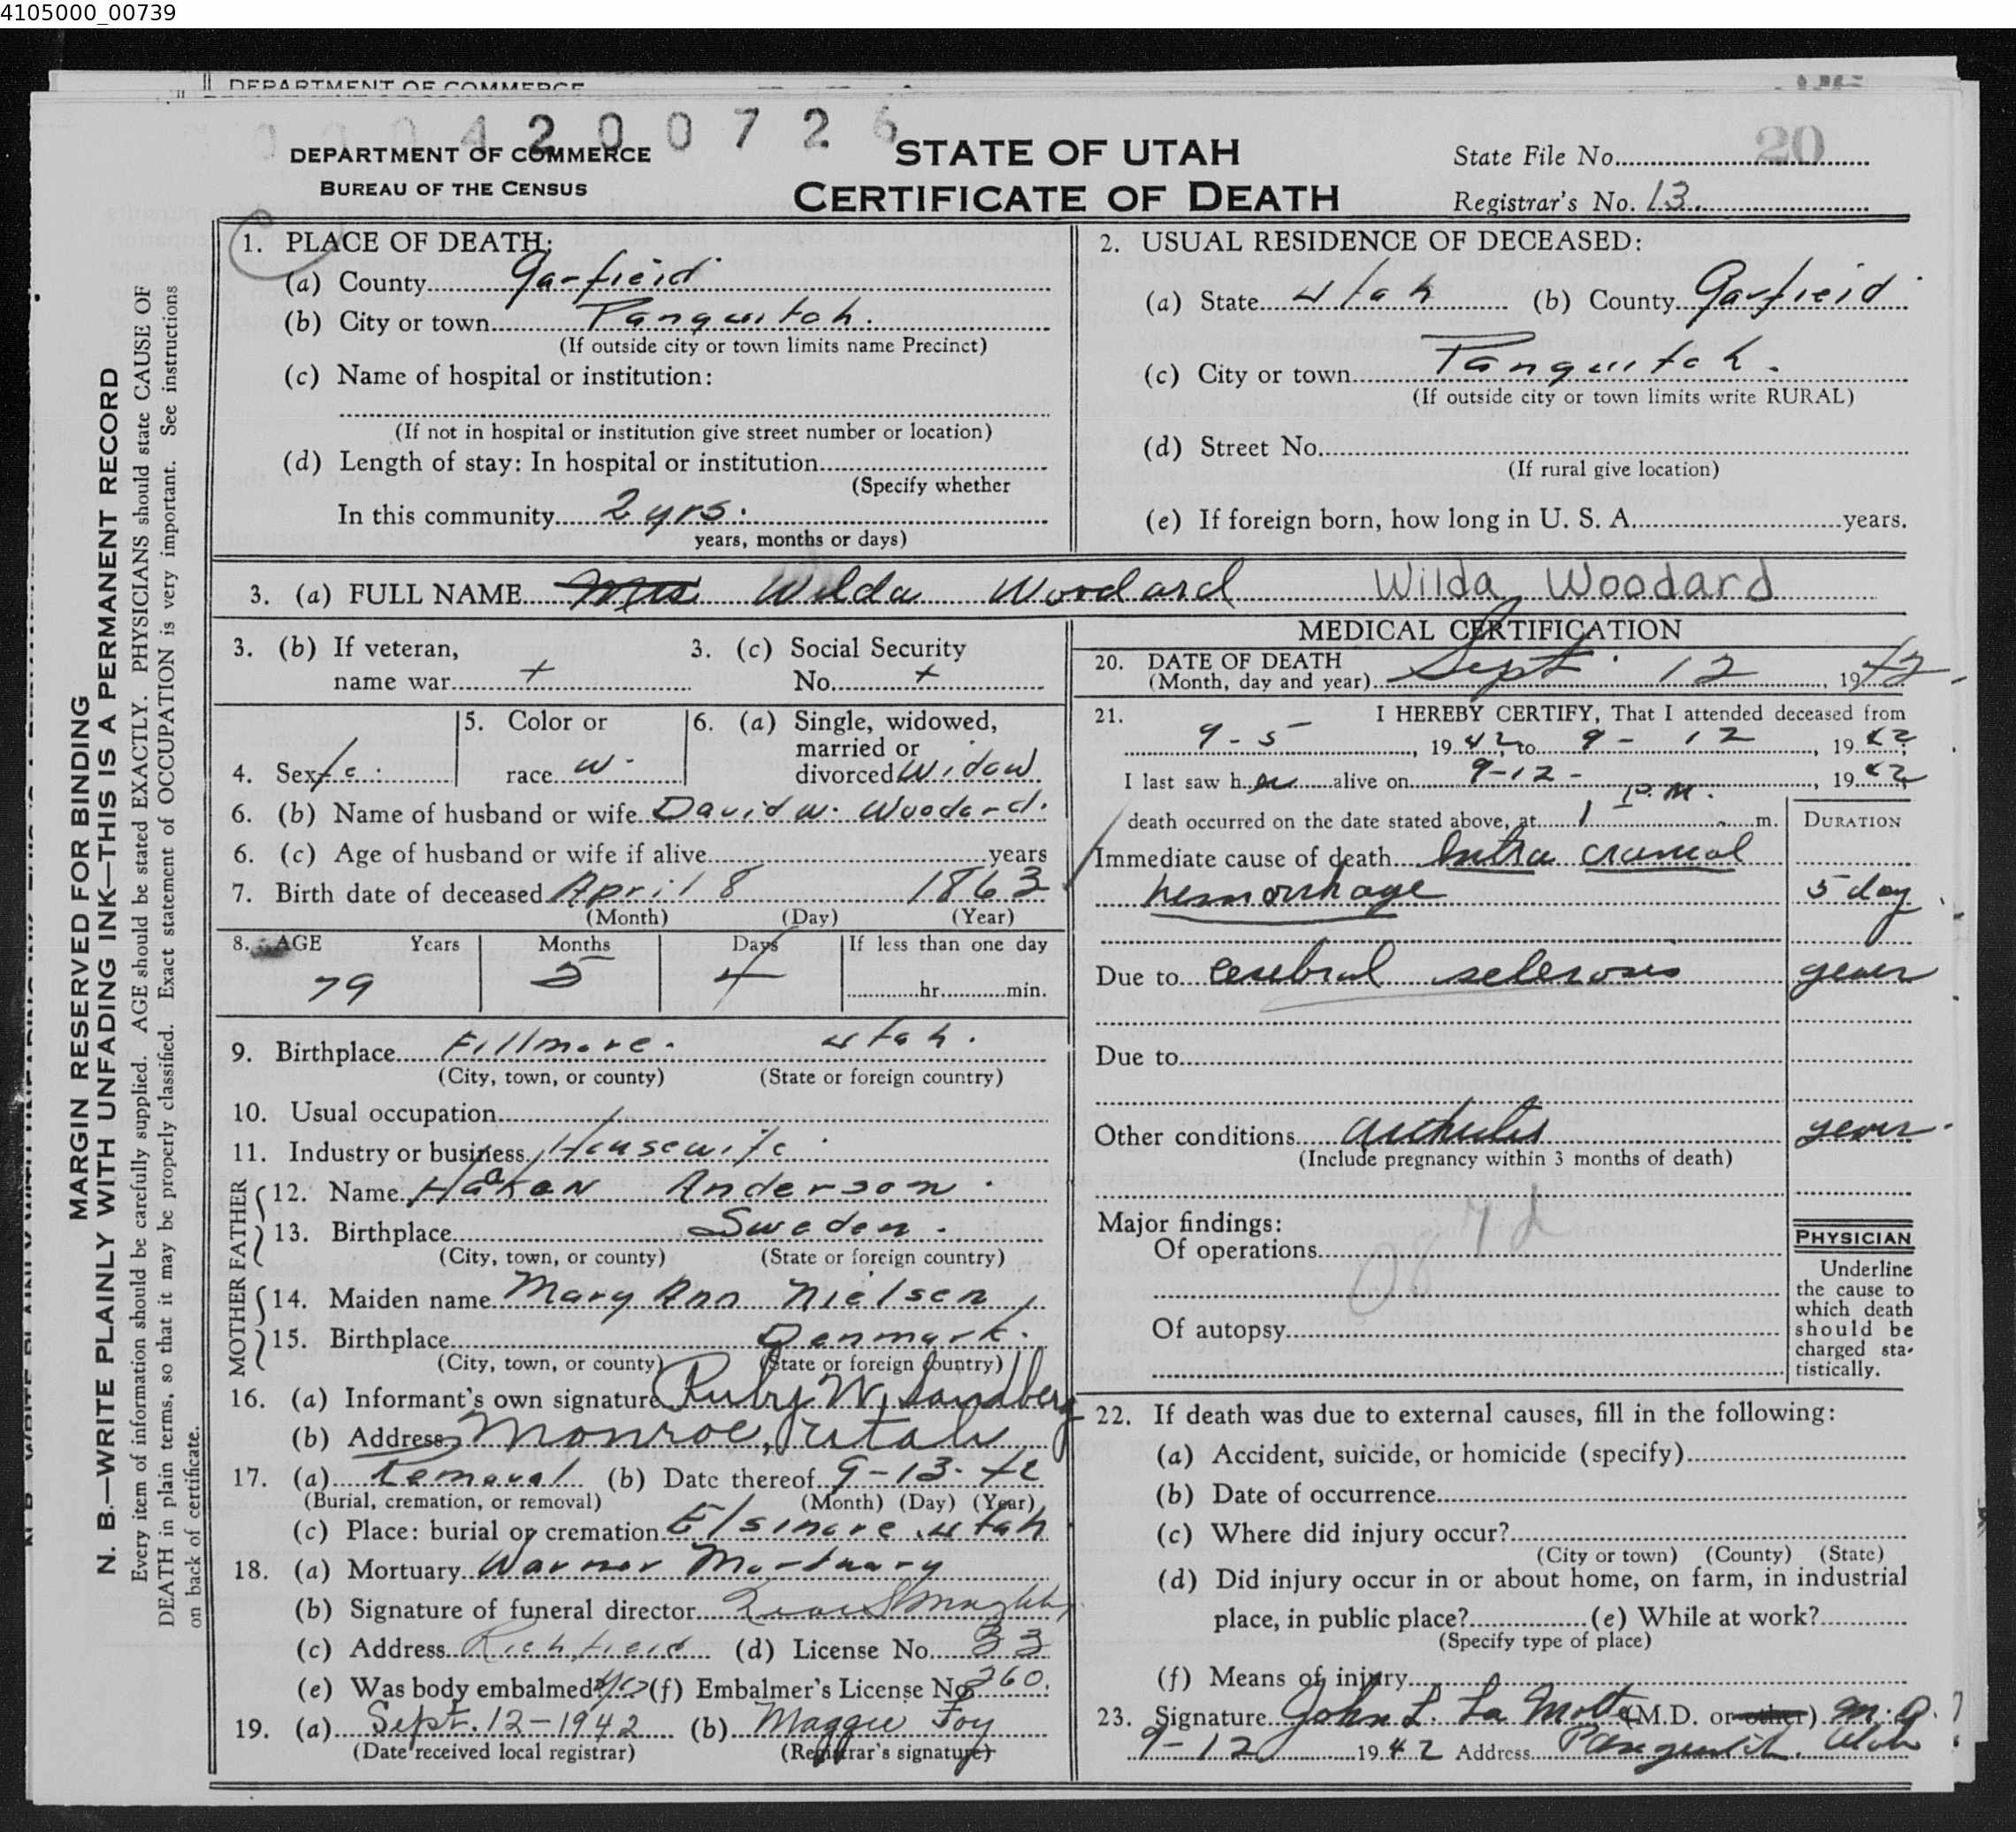 4105000_00739
DEPARTMENT OF COMMERCE
4 2 0 0 7 2 6
DEPARTMENT OF COMMERCE
BUREAU OF THE CENSUS
STATE OF UTAH
CERTIFICATE OF DEATH
State File No. 20
Registrar's No. 13
MARGIN RESERVED FOR BINDING
N. B.—WRITE PLAINLY WITH UNFADING INK—THIS IS A PERMANENT RECORD
Every item of information should be carefully supplied. AGE should be stated EXACTLY. PHYSICIANS should state CAUSE OF
DEATH in plain terms, so that it may be properly classified. Exact statement of OCCUPATION is very important. See instructions
on back of certificate.
1. PLACE OF DEATH:
(a) County Garfield
(b) City or town Panguitch.
(If outside city or town limits name Precinct)
(c) Name of hospital or institution:
(If not in hospital or institution give street number or location)
(d) Length of stay: In hospital or institution
(Specify whether
In this community 2 yrs.
years, months or days)
2. USUAL RESIDENCE OF DECEASED:
(a) State Utah (b) County Garfield
(c) City or town Panguitch.
(If outside city or town limits write RURAL)
(d) Street No.
(If rural give location)
(e) If foreign born, how long in U. S. A. years.
3. (a) FULL NAME Mrs Wilda Woodard Wilda Woodard
3. (b) If veteran, 3. (c) Social Security
name war + No. +
4. Sex fe. 5. Color or race w. 6. (a) Single, widowed, married or divorced Widow
6. (b) Name of husband or wife David W. Woodard.
6. (c) Age of husband or wife if alive years
7. Birth date of deceased April 8 1863
(Month) (Day) (Year)
8. AGE Years Months Days If less than one day
79 5 4 hr. min.
9. Birthplace Fillmore. Utah.
(City, town, or county) (State or foreign country)
10. Usual occupation
11. Industry or business Housewife.
FATHER
12. Name Hakan Anderson.
13. Birthplace Sweden.
(City, town, or county) (State or foreign country)
MOTHER
14. Maiden name Mary Ann Nielsen
15. Birthplace Denmark.
(City, town, or county) (State or foreign country)
16. (a) Informant's own signature Ruby W. Sandberg
(b) Address Monroe, Utah
17. (a) Removal (b) Date thereof 9-13-42
(Burial, cremation, or removal) (Month) (Day) (Year)
(c) Place: burial or cremation Elsinore, Utah
18. (a) Mortuary Warner Mortuary
(b) Signature of funeral director
(c) Address Richfield (d) License No. 33
(e) Was body embalmed? Yes (f) Embalmer's License No. 260.
19. (a) Sept. 12-1942 (b) Maggie Foy
(Date received local registrar) (Registrar's signature)
MEDICAL CERTIFICATION
20. DATE OF DEATH
(Month, day and year) Sept. 12, 1942.
21. I HEREBY CERTIFY, That I attended deceased from
9-5-, 1942, to 9-12, 1942,
I last saw her alive on 9-12-, 1942
death occurred on the date stated above, at 1 P.M. m. DURATION
Immediate cause of death Intra cranial
hemorrhage 5 day
Due to cerebral sclerosis years
Due to
Other conditions arthritis years.
(Include pregnancy within 3 months of death)
Major findings:
Of operations
Of autopsy
PHYSICIAN
Underline
the cause to
which death
should be
charged sta-
tistically.
22. If death was due to external causes, fill in the following:
(a) Accident, suicide, or homicide (specify)
(b) Date of occurrence
(c) Where did injury occur?
(City or town) (County) (State)
(d) Did injury occur in or about home, on farm, in industrial
place, in public place? (e) While at work?
(Specify type of place)
(f) Means of injury
23. Signature John L. La Motte (M.D. or other) M.D.
9-12 1942 Address Panguitch, Utah